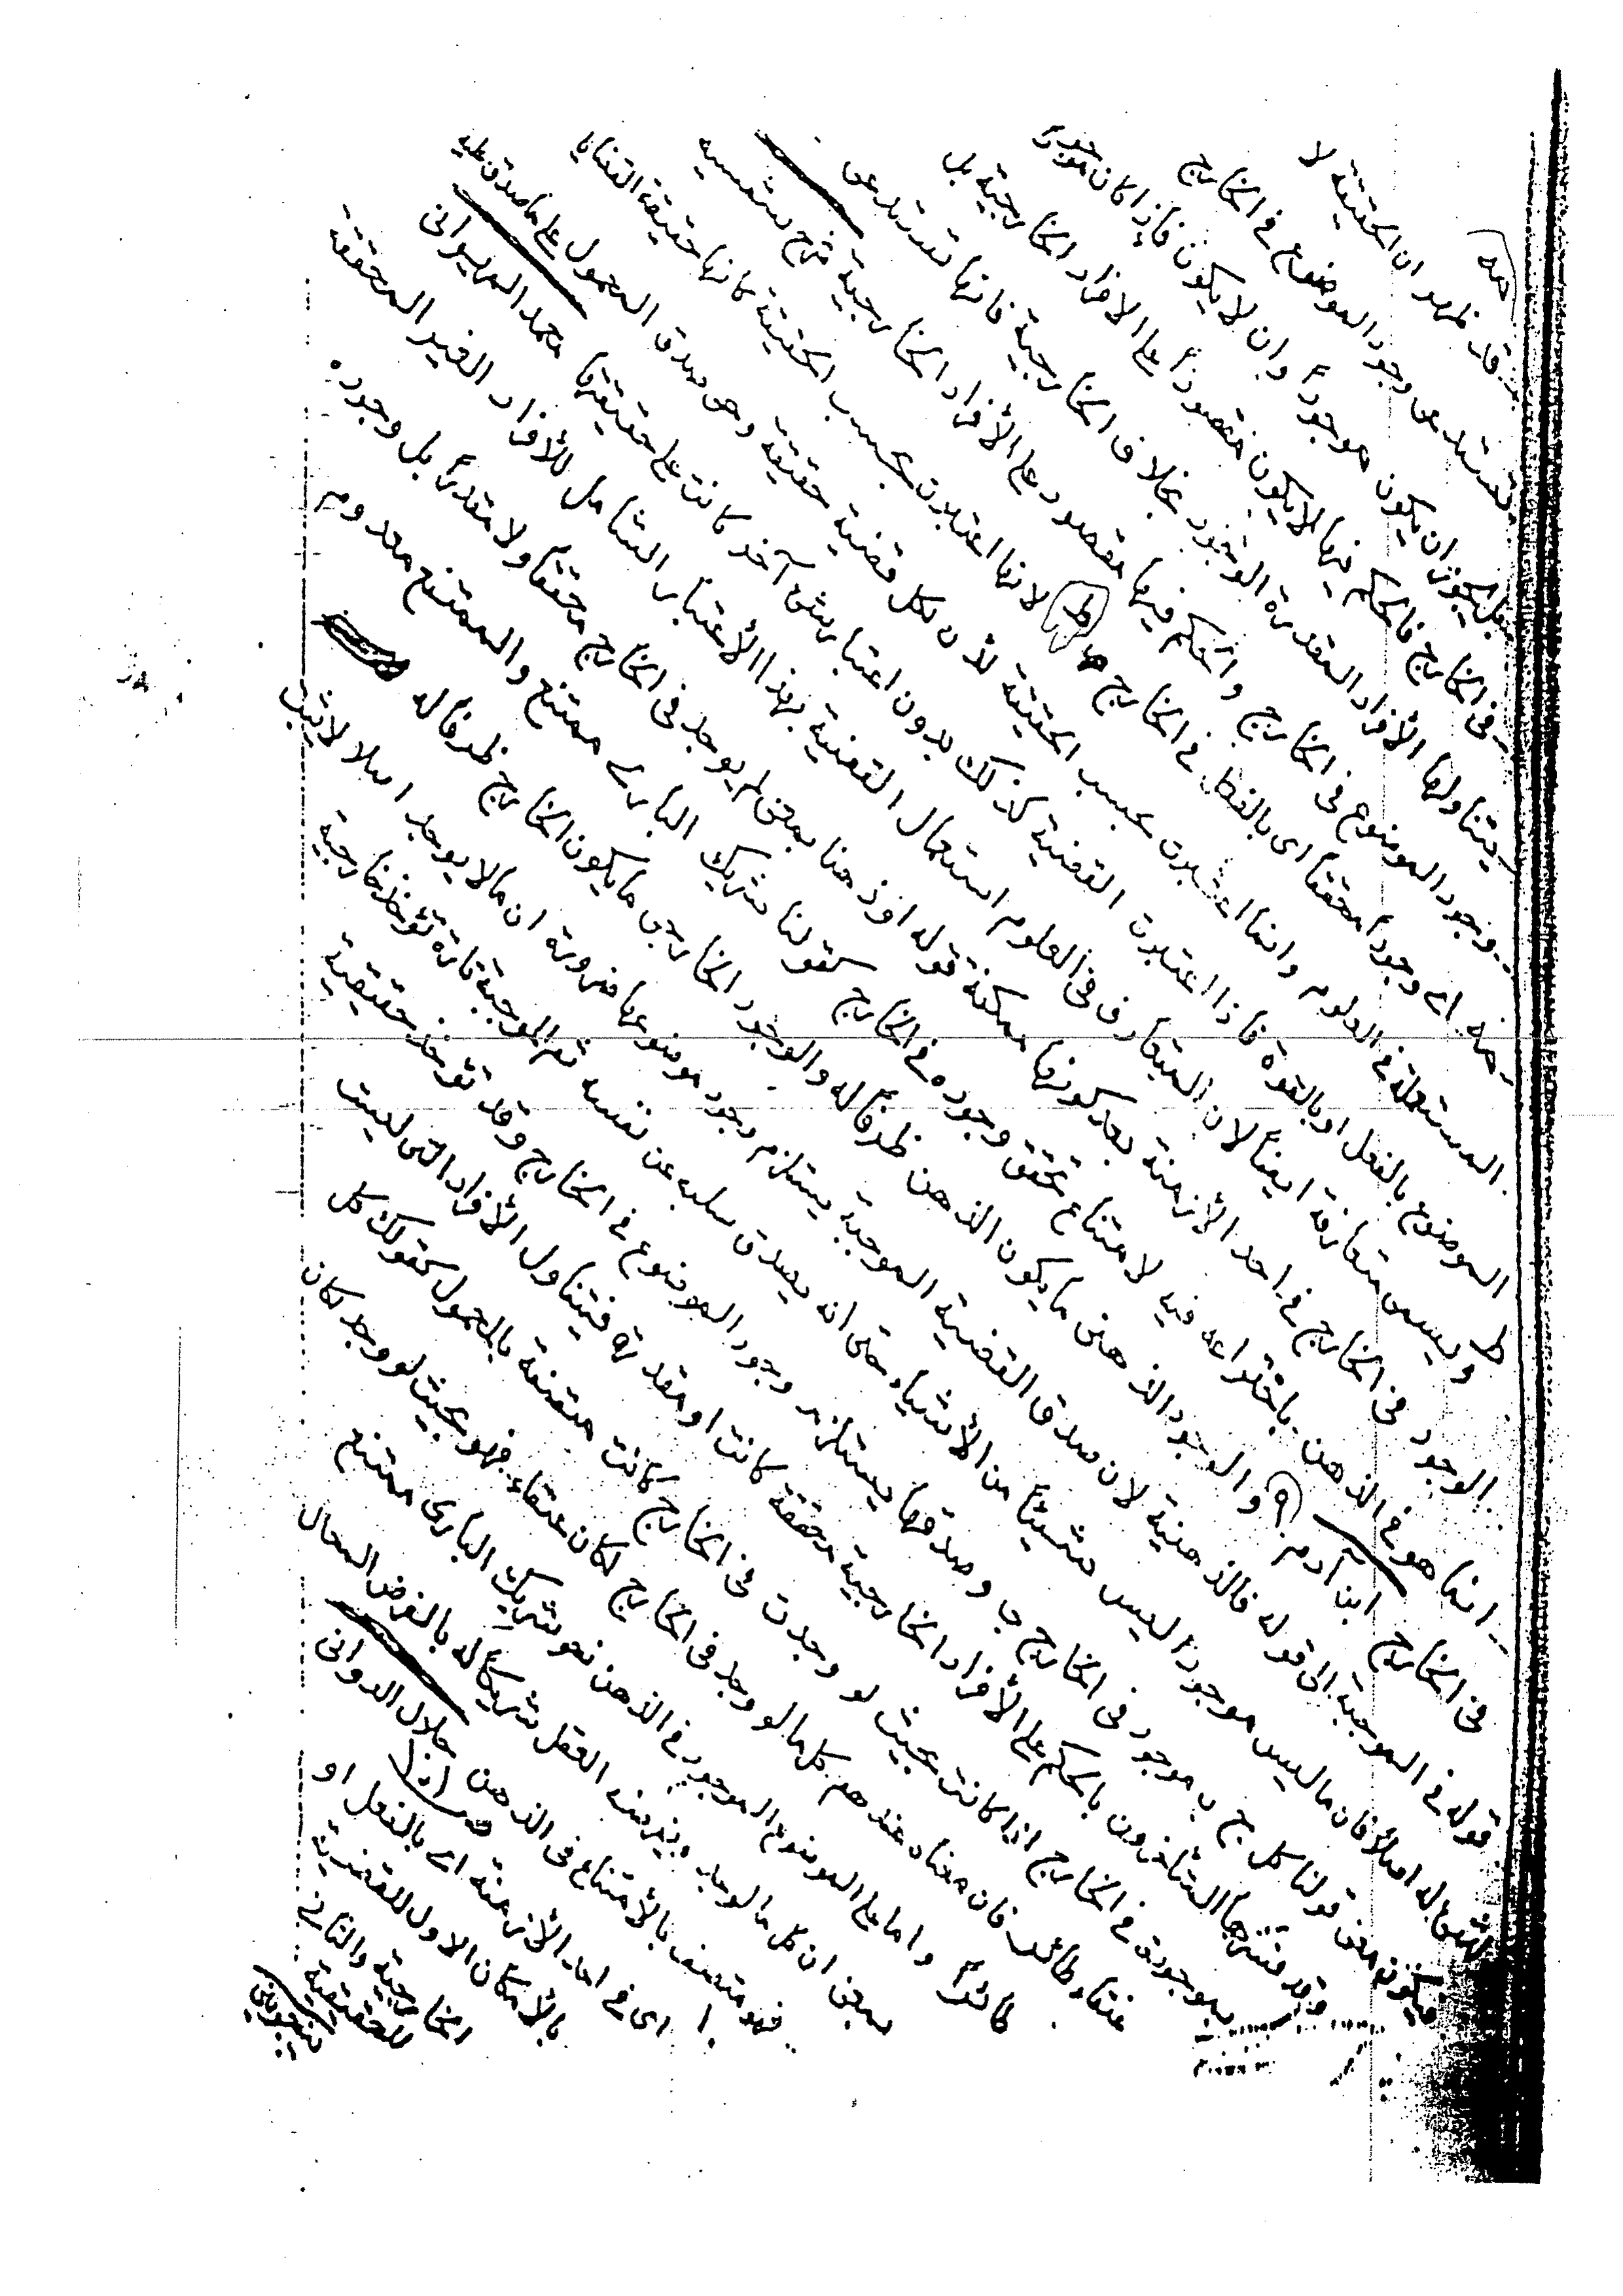 منه
قد ظهر ان الحقيقية لا
تستدعى وجود الموضوع في الخارج
بل يجوز ان يكون موجوداً وان لا يكون فاذا كان موجوداً
في الخارج فالحكم فيها لا يكون مقصوداً على الافراد الخارجية بل
يتناولها الأفراد المقدرة الوجود بخلاف الخارجية فانها تستدعى
وجود الموضوع في الخارج والحكم فيها مقصود على الأفراد الخارجية شرح شمسيه
منه اى وجوداً محققا اى بالفعل في الخارج ط لانها اعتبرت بحسب الحقيقة كانها حقيقة القضايا
المستعملة في العلوم وانما اعتبرت بحسب الحقيقة لأن لكل قضية حقيقة وهى صدق المحمول على ما صدق عليه
الموضوع بالفعل او بالقوة فاذا اعتبرت القضية كذلك بدون اعتبار شئ آخر كانت على حقيقتها محمد
ط ويسمى متعارفة ايضاً لان المتعارف في العلوم استعمال القضية بهذا الأعتبار الشامل للأفراد الغير المحققة
الوجود في الخارج في احد الأزمنة بعد كونها ممكنة قوله او ذهنا بمعنى لم يوجد في الخارج محققاً ولا مقدراً بل وجوده
انما هو في الذهن باختراعه فيه لامتناع تحقق وجوده في الخارج كقولنا شريك البارى ممتنع والممتنع معدوم
في الخارج ابن آدم (٩) والوجود الذهنى ما يكون الذهن ظرفا له والوجود الخارجى ما يكون الخارج ظرفاً له
قوله في الموجبة الى قوله فالذهنية لان صدق القضية الموجبة يستلزم وجود موضوعها ضرورة ان مالا يوجد اصلا لا يثبت
شئ له اصلاً فان ما ليس موجوداً ليس شيئاً من الأشياء حتى انه يصدق سلبه عن نفسه ثم الموجبة تارة تؤخذ خارجية
فيكون معنى قولنا كل ج ب موجود في الخارج ب وصدقها يستلزم وجود الموضوع في الخارج وقد تؤخذ حقيقية
وقد فسرها المتأخرون بالحكم على الأفراد الخارجية محققة كانت او مقدرة فيتناول الأفراد التى ليست
بموجودة في الخارج اذا كانت بحيث لو وجدت في الخارج كانت متصفة بالمحمول كقولك كل
عنقاء طائر فان معناه عندهم كل ما لو وجد في الخارج لكان عنقاء فهو بحيث لو وجد لكان
طائراً واما على الموضوع الموجود في الذهن نحو شريك البارى ممتنع
بمعنى ان كل ما يوجد ويفرضه العقل شريكا له بالفرض المحال
فهو متصف بالأمتناع في الذهن جلال الدوانى
اى في احد الأزمنة اى بالفعل او
بالأمكان الاول للقضية
الخارجية والثانى
للحقيقية
بنجوينى